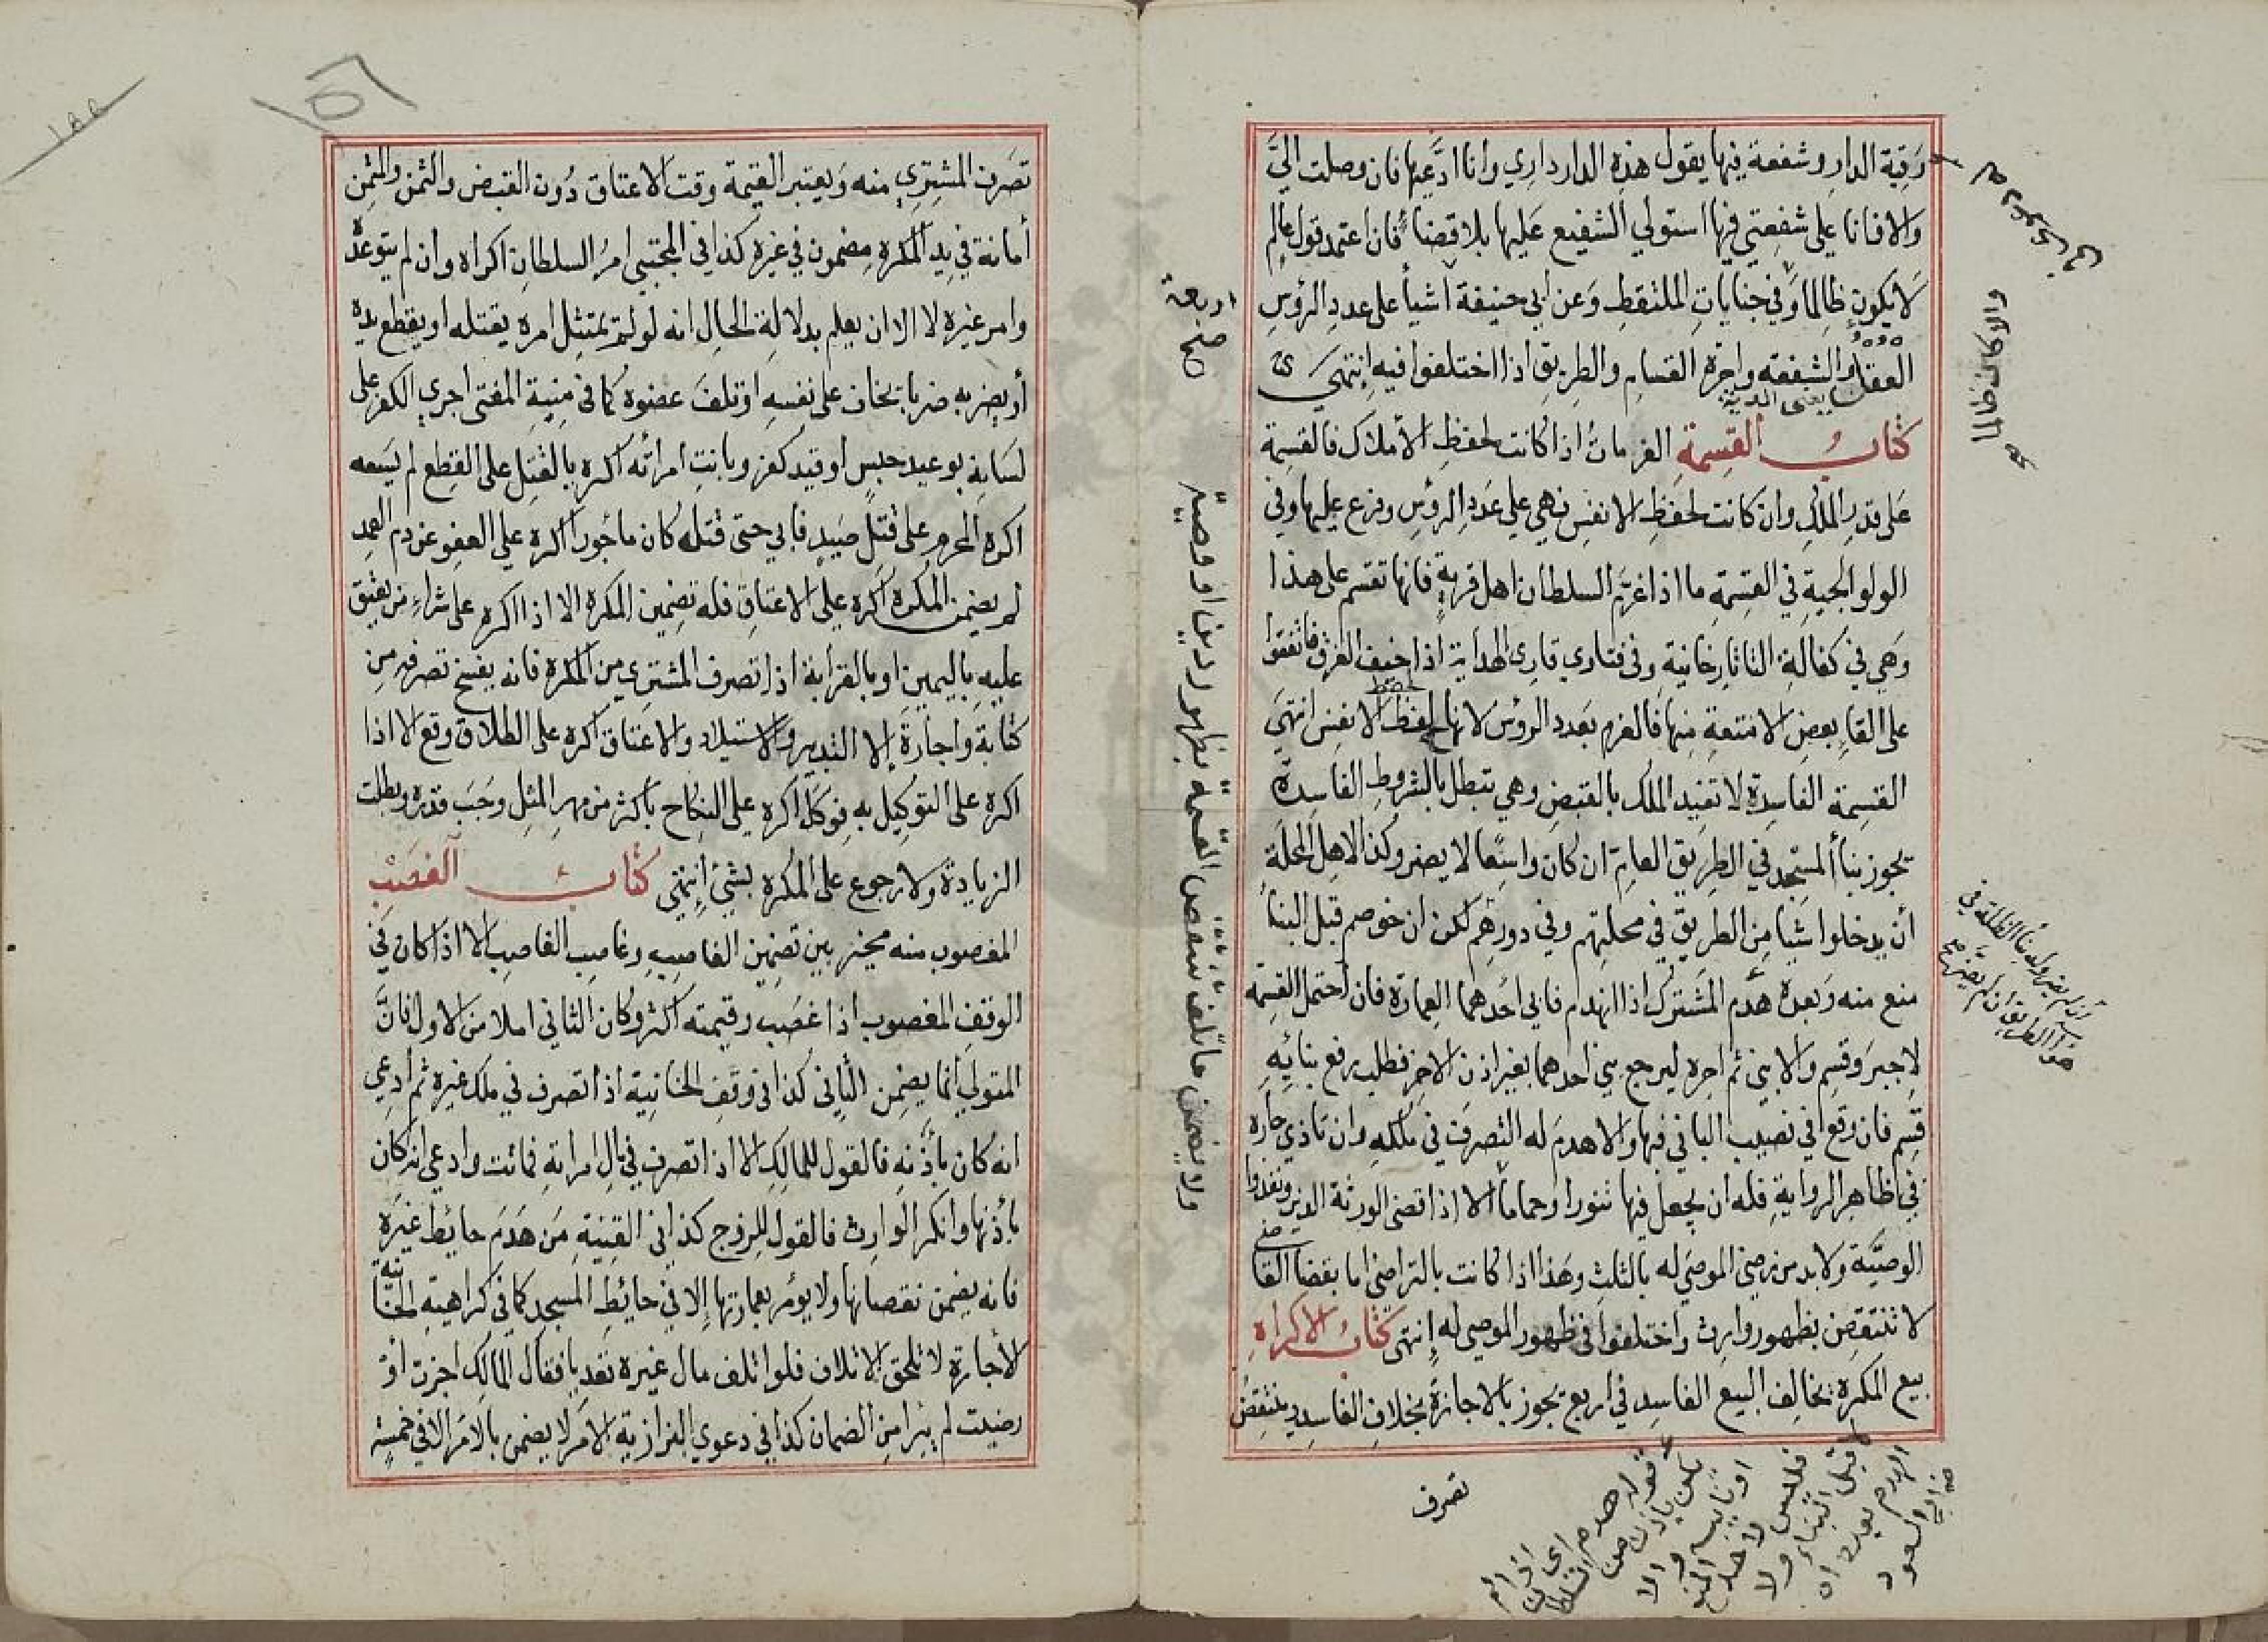 رقبة الدار وشفعة فيها يقول هذه الدار داري وانا ادعيها فان وصلت الي
والا فانا على شفعتي فيها استولي الشفيع عليها بلا قضاء فان اعتمد قول عالم
لا يكون ظالما وفي جنايات الملتقط وعن ابي حنيفة اشيأ على عدد الرؤس
العقل والشفعة واجرة القسام والطريق اذا اختلفوا فيه انتهى
كتاب القسمة الغرمات اذا كانت لحفظ الأملاك فالقسمة
على قدر الملك وان كانت لحفظ الانفس فهي على عدد الرؤس وفرع عليها وفي
الولوالجية في القسمة ما اذا غرم السلطان اهل قرية فانها تقسم على هذا
وهي في كفالة التاتارخانية وفي فتاوي قارى الهداية اذا خيف الغرق فاتفقوا
على القاء بعض الامتعة منها فالغرم بعدد الرؤس لانها لحفظ الانفس انتهى
القسمة الفاسدة لا تفيد الملك بالقبض وهي تبطل بالشروط الفاسدة
يجوز بنأ المسجد في الطريق العام ان كان واسعا لا يضر وكذا لاهل المحلة
أن يدخلوا شيأ من الطريق في محلتهم وفي دورهم لكن ان خوصم قبل البنأ
منع منه وبعده هدم المشترك اذا انهدم فابي احدهما العمارة فان احتمل القسمة
لا جبر وقسم والا بني ثم اجره ليرجع بني احدهما بغير اذن الاخر فطلب رفع بنائه
قسم فان وقع في نصيب الباني فبها والا هدم له التصرف في ملكه وان تاذي جاره
في ظاهر الرواية فله ان يجعل فيها تنورا وحماما الا اذا قضى الورثة الدين ونفذوا
الوصية ولا بد من رضى الموصى له بالثلث وهذا اذا كانت بالتراضى اما بقضأ القاضى
لا تنتقض بظهور وارث واختلفوا في ظهور الموصى له انتهى كتاب الاكراه
بيع المكره يخالف البيع الفاسد في اربع يجوز بالاجازة بخلاف الفاسد وينتقض
تصرف
والا كان ظالما
اربعة صح
ولا يضمن ما تلف تنتقض القسمة بظهور دين او وصية
تصرف المشتري منه ويعتبر القيمة وقت الاعتاق دون القبض والثمن والثمن
أمانة في يد المكره مضمون في غيره كذا في المجتبى امر السلطان اكراه وان لم يتوعده
وامر غيره لا الا ان يعلم بدلالة الحال انه لو لم يمتثل امره يقتله او يقطع يده
أو يضربه ضربا يخاف على نفسه او تلف عضوه كما في منية المفتى اجرى الكفر على
لسانه بوعيد حبس او قيد كفر وبانت امرأته اكره بالقتل على القطع لم يسعه
اكره المحرم على قتل صيد فابي حتى قتله كان مأجورا اكره على العفو عن دم العمد
لم يضمن المكره اكره على الاعتاق فله تضمين المكره الا اذا اكره على شراء من يعتق
عليه باليمين او بالقرابة اذا تصرف المشترى من المكره فانه يفسخ تصرفه من
كتابة واجارة إلا التدبير والاستيلاد والاعتاق اكره على الطلاق وقع الا اذا
اكره على التوكيل به فوكل اكره على النكاح باكثر من مهر المثل وجب قدره وبطلت
الزيادة ولا رجوع على المكره بشئ انتهى كتاب الغصب
المغصوب منه مخير بين تضمين الغاصب وغاصب الغاصب الا اذا كان في
الوقف المغصوب اذا غصب وقيمته اكثر وكان الثاني املا من الاول فان
المتولي انما يضمن الثاني كذا في وقف الخانية اذا تصرف في ملك غيره ثم ادعى
انه كان بأذنه فالقول للمالك الا اذا تصرف في مال امراته فماتت وادعى انه كان
بأذنها وانكر الوارث فالقول للزوج كذا في القنية من هدم حائط غيره
فانه يضمن نقصانها ولا يؤمر بعمارتها إلا في حائط المسجد كما في كراهية الخانية
الأجازة لا تلحق الاتلاف فلو اتلف مال غيره تعديا فقال المالك اجزت او
رضيت لم يبرا من الضمان كذا في دعوي البزازية الامر لا يضمن بالامر الا في خمسة